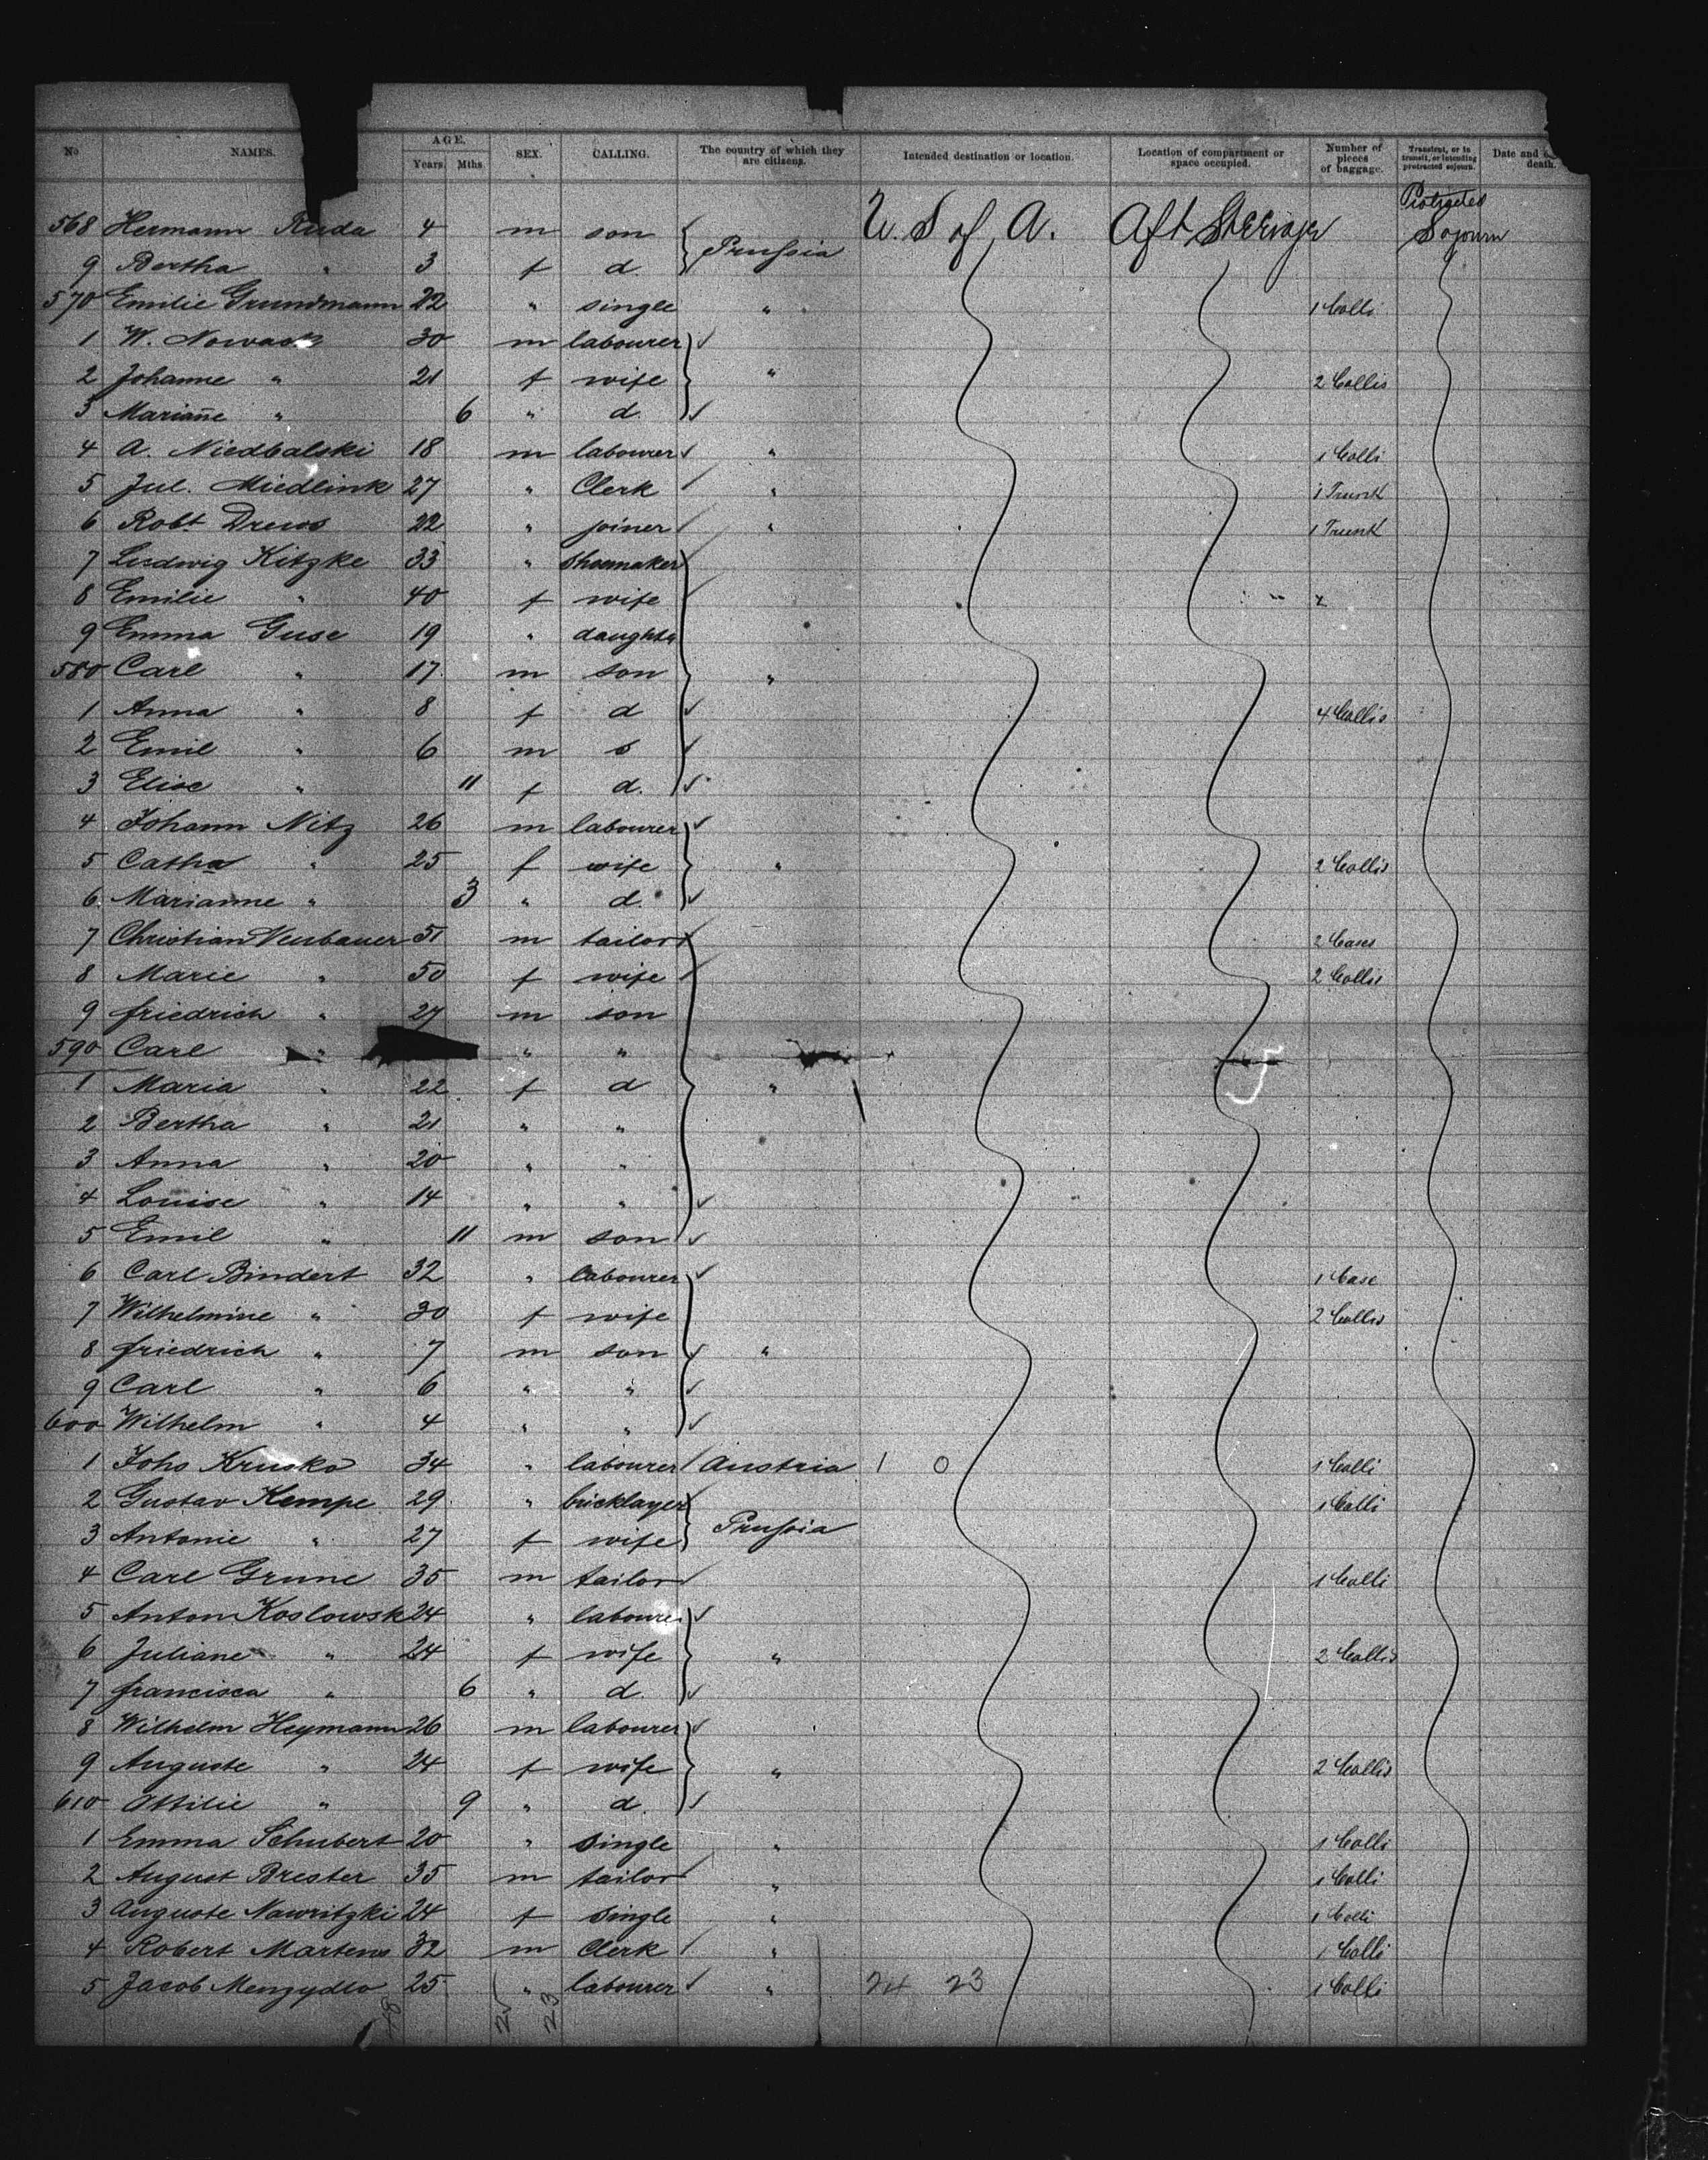 No NAMES. AGE. Years. Mths. SEX. CALLING. The country of which they are citizens. Intended destination or location. Location of compartment or space occupied. Number of pieces of baggage. Transient, or in transit, or intending protracted sojourn. Date and death.
568 Hermann Ruda 4 m son Prussia U.S of A. Aft Steerage Protracted Sojourn
9 Bertha " 3 f d
570 Emilie Grundmann 22 " single " 1 Colli
1 W. Nowack 30 m labourer
2 Johanne " 21 f wife " 2 Collis
3 Mariañe " 6 " d.
4 A. Niedbalski 18 m labourer " 1 Colli
5 Jul. Miedlink 27 " Clerk " 1 Trunk
6 Robt Drews 22 " joiner " 1 Trunk
7 Ludwig Kitzke 33 " shoemaker
8 Emilie " 40 f wife
9 Emma Guse 19 " daughtr
580 Carl " 17 m son "
1 Anna " 8 f d 4 Collis
2 Emil " 6 m s
3 Elise " 11 f d.
4 Johann Nitz 26 m labourer
5 Catha " 25 f wife " 2 Collis
6 Marianne " 3 " d.
7 Christian Neubauer 51 m tailor 2 Cases
8 Marie " 50 f wife 2 Collis
9 friedrich " 27 m son
590 Carl " " "
1 Maria " 22 f d "
2 Bertha " 21 " "
3 Anna " 20 " "
4 Louise " 14 " "
5 Emil " 11 m son
6 Carl Bindert 32 " labourer 1 Case
7 Wilhelmine " 30 f wife 2 Collis
8 friedrich " 7 m son "
9 Carl " 6 " "
600 Wilhelm " 4 " "
1 Johs Krusko 34 " labourer Austria 1 0 1 Colli
2 Gustav Kempe 29 " bricklayer 1 Colli
3 Antonie " 27 f wife Prussia
4 Carl Grune 35 m tailor 1 Colli
5 Anton Koslowsk 24 " labourer
6 Juliane " 24 f wife " 2 Collis
7 francisca " 6 " d.
8 Wilhelm Heymann 26 m labourer
9 Auguste " 24 f wife " 2 Collis
610 Ottilie " 9 " d.
1 Emma Schubert 20 " single " 1 Colli
2 August Brester 35 m tailor " 1 Colli
3 Auguste Nawritzki 24 f single " 1 Colli
4 Robert Martens 32 m Clerk " 1 Colli
5 Jacob Menzydlo 25 " labourer " 24 23 1 Colli
25 23